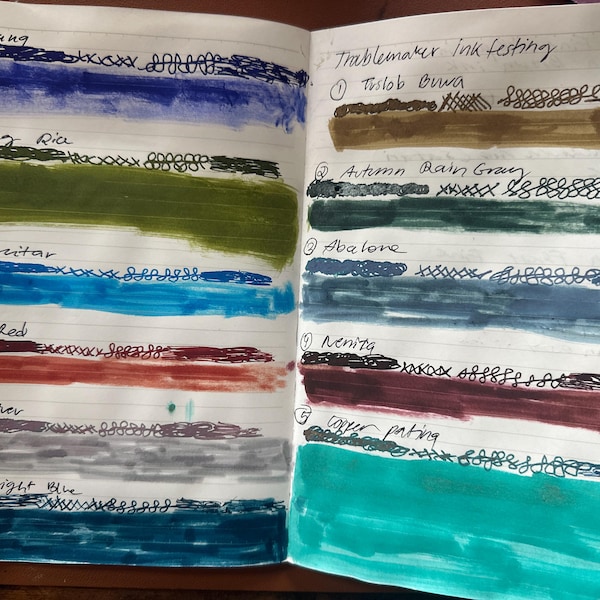 Rice
Red
Blue
Troublemaker ink testing
① Tuslob Buwa
② Autumn Rain Gray
③ Abalone
④ Nenita
⑤ Copper patina